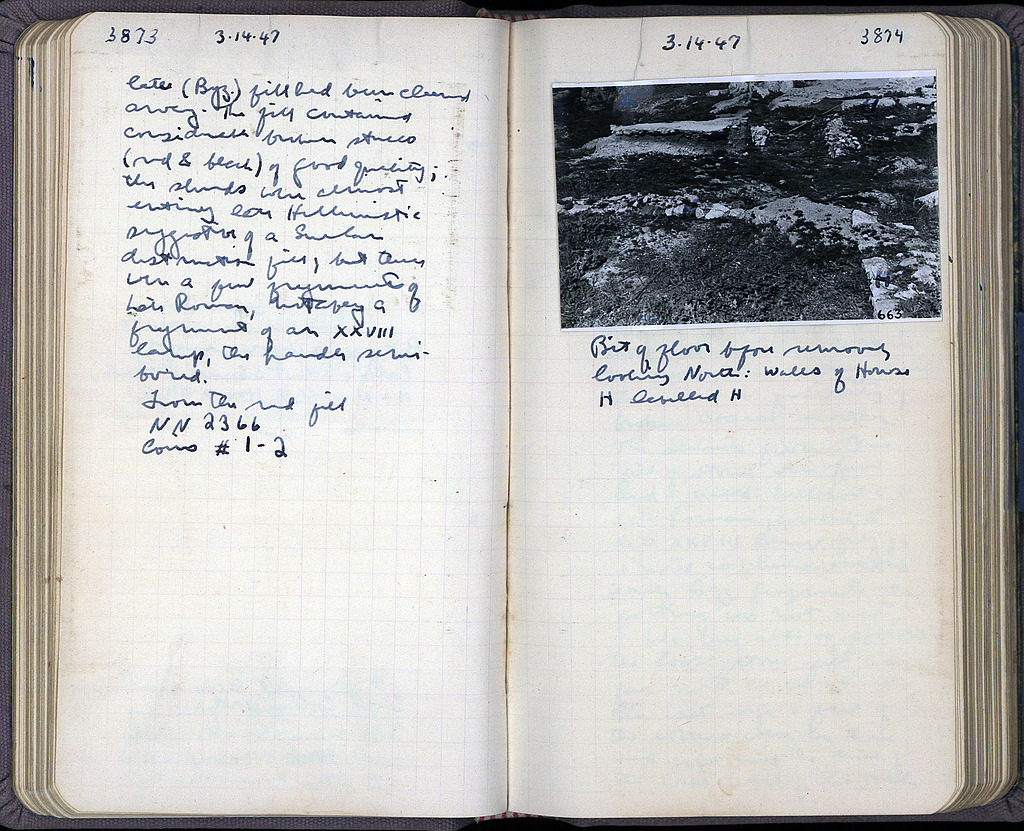 3873 3·14·47
late (Byz.) fill had been cleared
away. The fill contained
considerable broken stucco
(red & black) of good quality;
the sherds were almost
entirely late Hellenistic
suggestive of a Sullan
destruction fill, but there
were a few fragments of
late Roman, notably a
fragment of an XXVIII
lamp, the handle semi-
bored.
From the red fill
NN 2366
Coins # 1-2
3874 3·14·47
663
Bit of floor before removal,
looking North: Walls of House
H labelled H